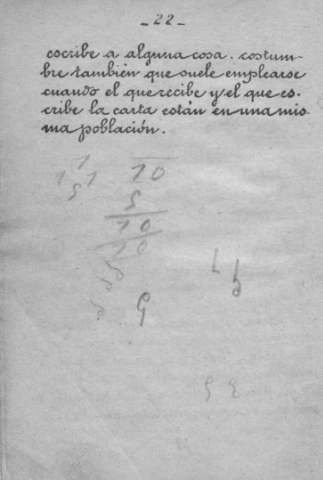 - 22 -
escribe a alguna cosa. costum-
bre también que suele emplearse
cuando el que recibe y el que es-
cribe la carta están en una mis
ma población.
1
1 1 10
5
5
10
10